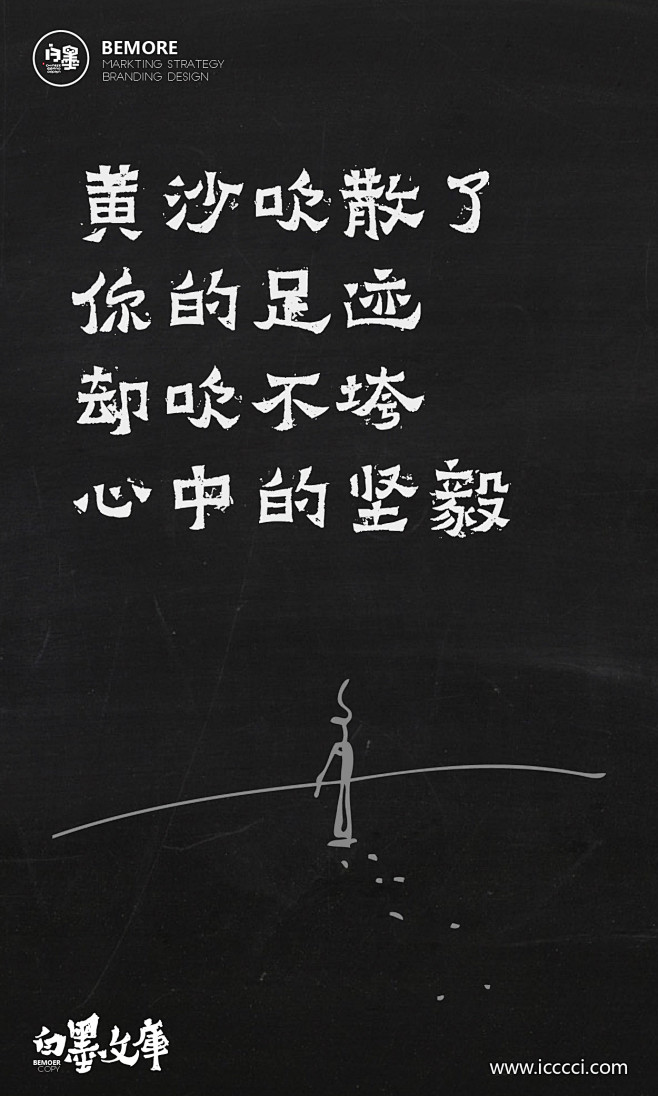 白墨
BEMORE
MARKTING STRATEGY
BRANDING DESIGN
黄沙吹散了
你的足迹
却吹不垮
心中的坚毅
白墨文庫
BEMOER
COPY
www.icccci.com